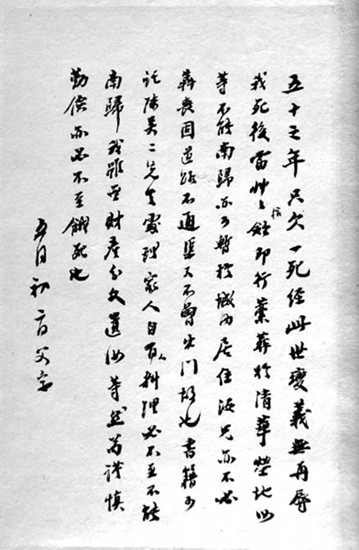 五十之年只欠一死經此世變義無再辱
我死後當草草棺殮即行藁葬於清華塋地汝
等不能南歸亦可暫於城內居住汝兄亦不必
奔喪因道路不通渠又不曾出門故也書籍可
託陳吳二先生處理家人自有人料理必不至不能
南歸我雖無財產分文遺汝等然苟謹慎
勤儉亦必不至餓死也
五月初二日父字